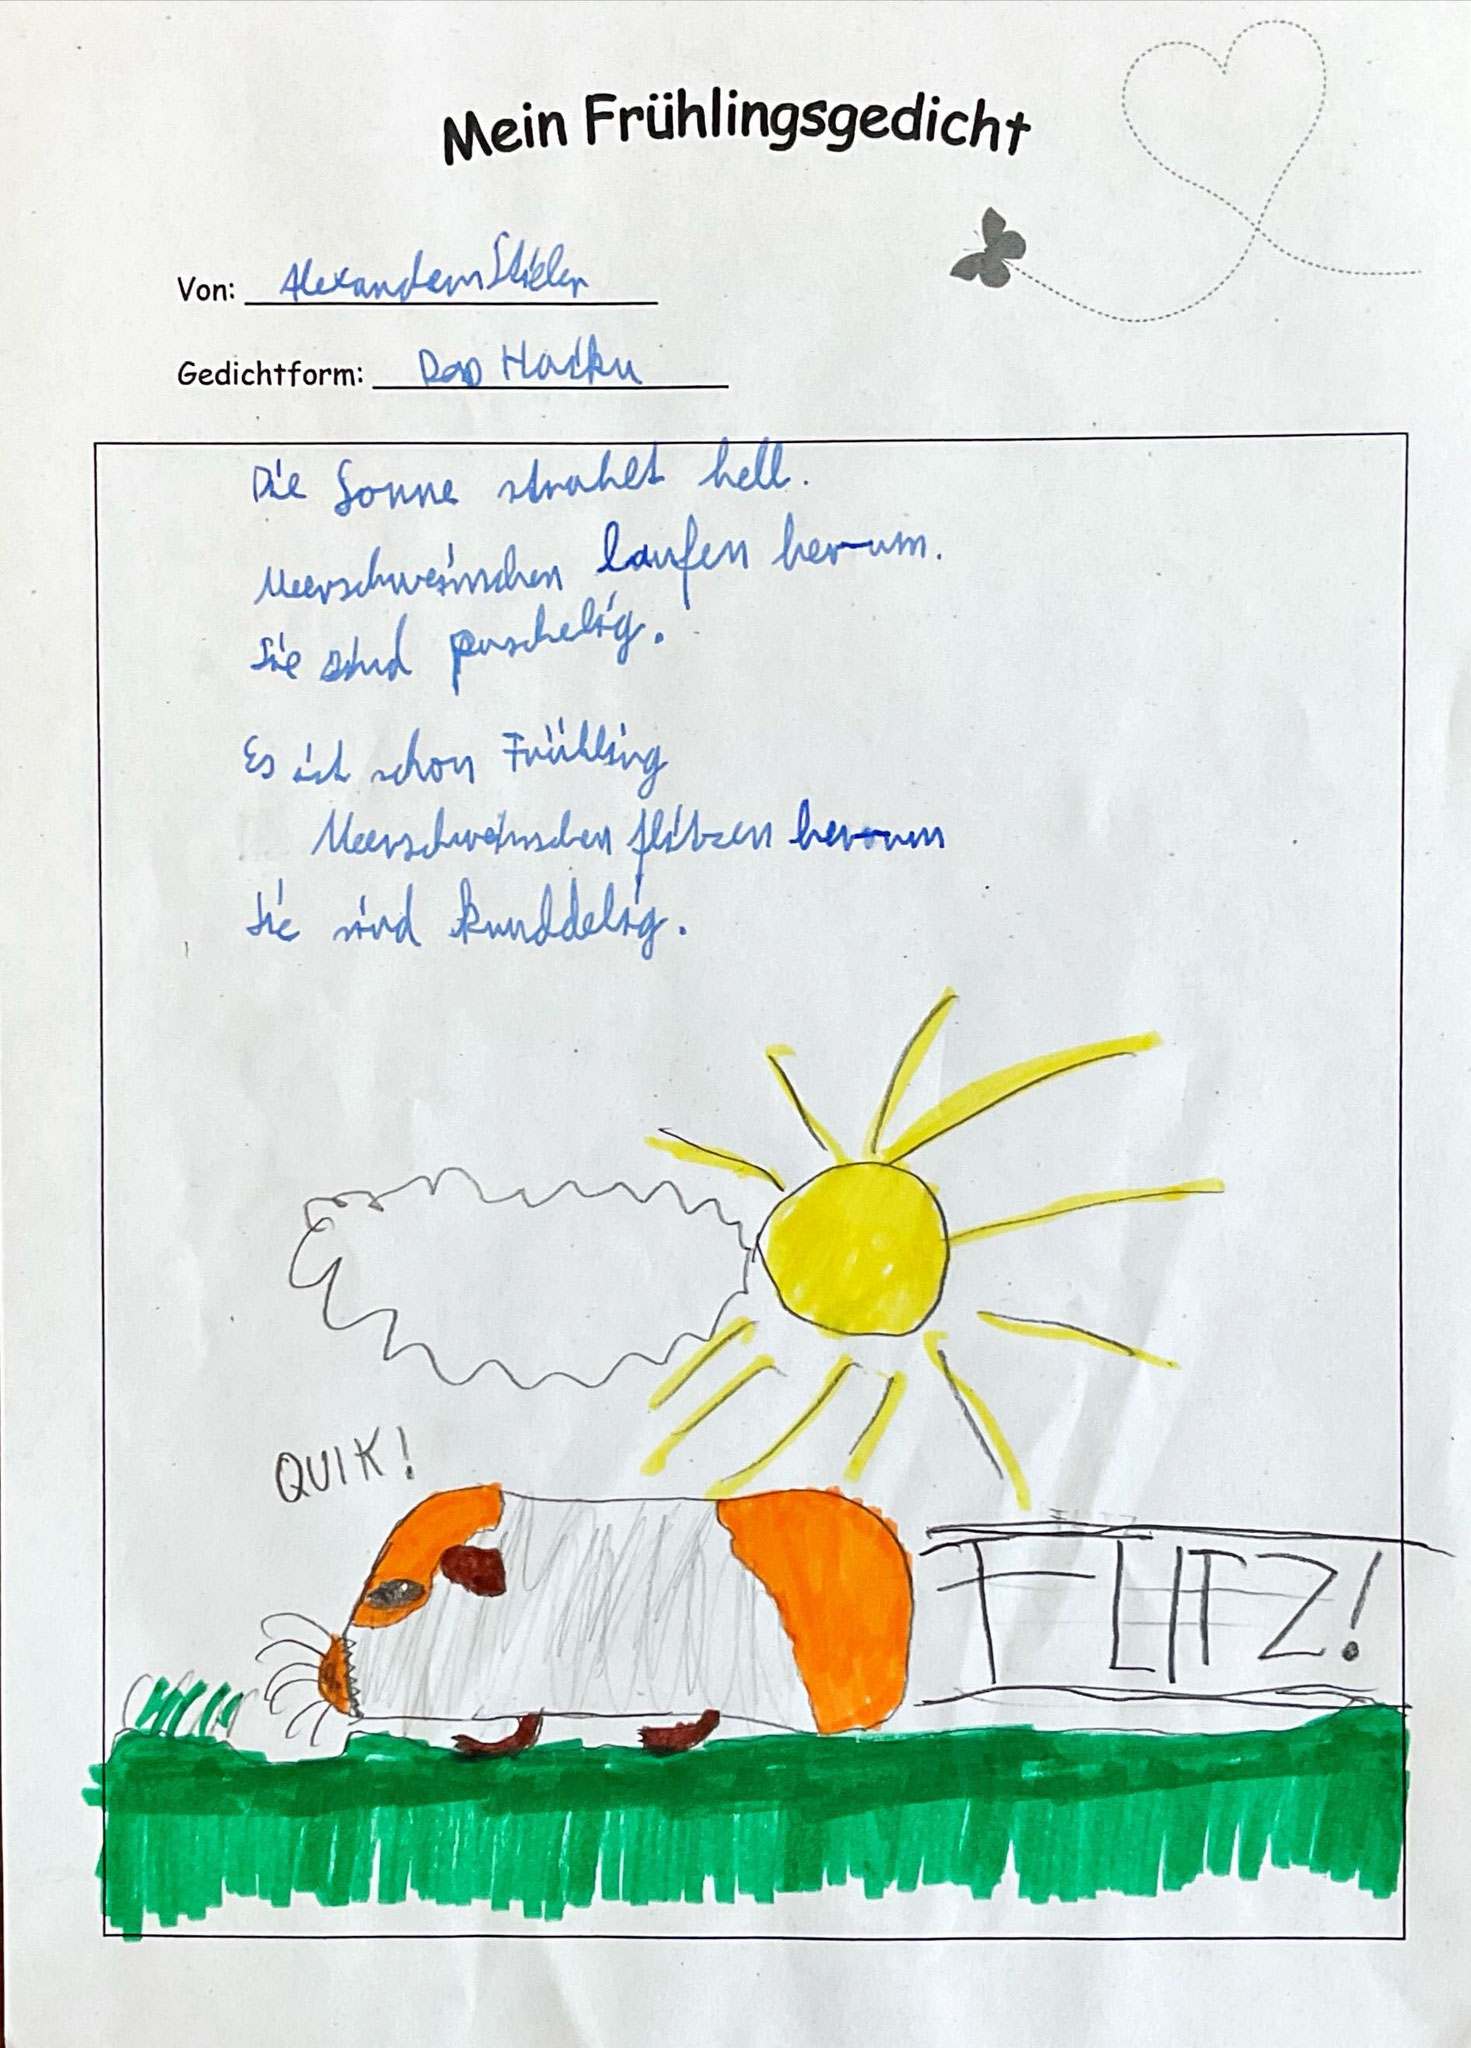 Mein Frühlingsgedicht
Von: Alexander Stieler
Gedichtform: Das Haiku
Die Sonne strahlt hell.
Meerschweinchen laufen herum.
Sie sind puschelig.
Es ist schon Frühling
Meerschweinchen flitzen herum
Sie sind kunddelig.
QUIK!
FLITZ!